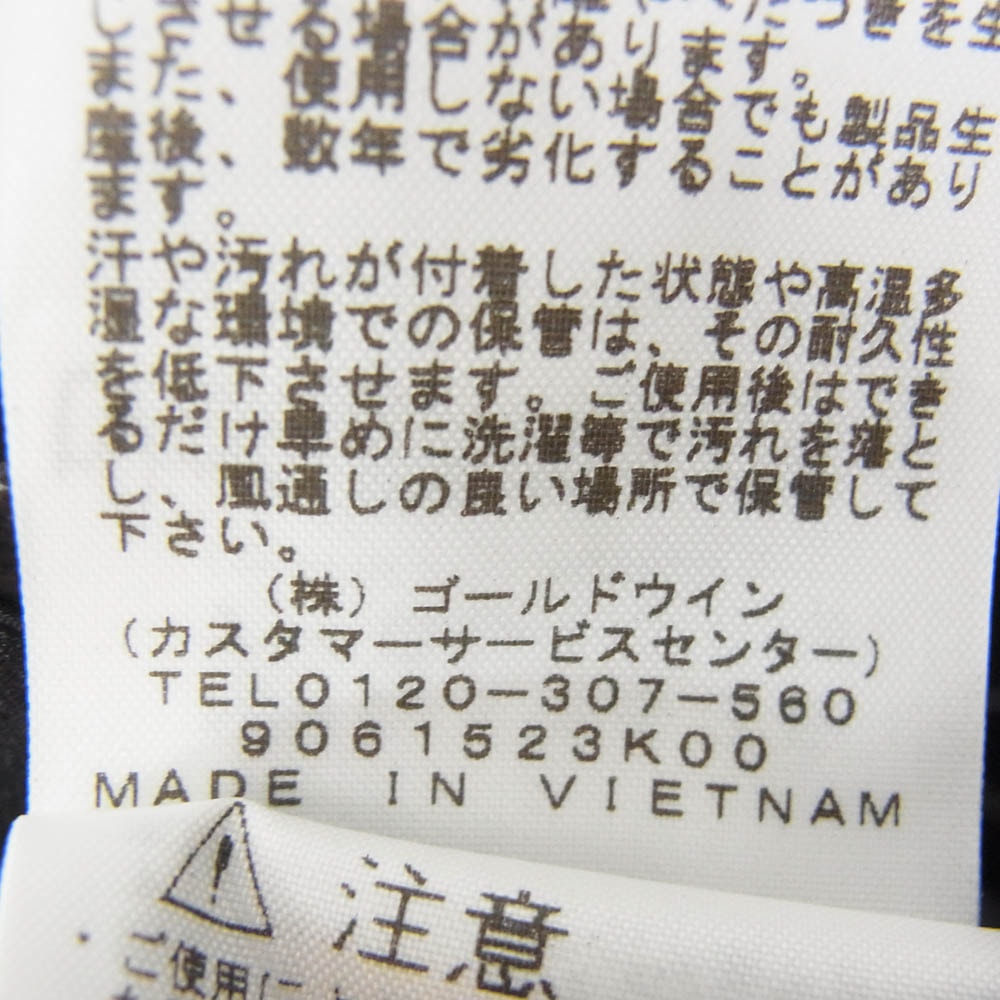 せる場合があります。
ました、使用しない場合でも製品生
摩後、数年で劣化することがあり
ます。
汗や汚れが付着した状態や高温多
湿な環境での保管は、その耐久性
を低下させます。ご使用後はでき
るだけ早めに洗濯等で汚れを落と
し、風通しの良い場所で保管して
下さい。
(株) ゴールドウイン
(カスタマーサービスセンター)
TEL0120-307-560
9061523K00
MADE IN VIETNAM
注意
ご使用に